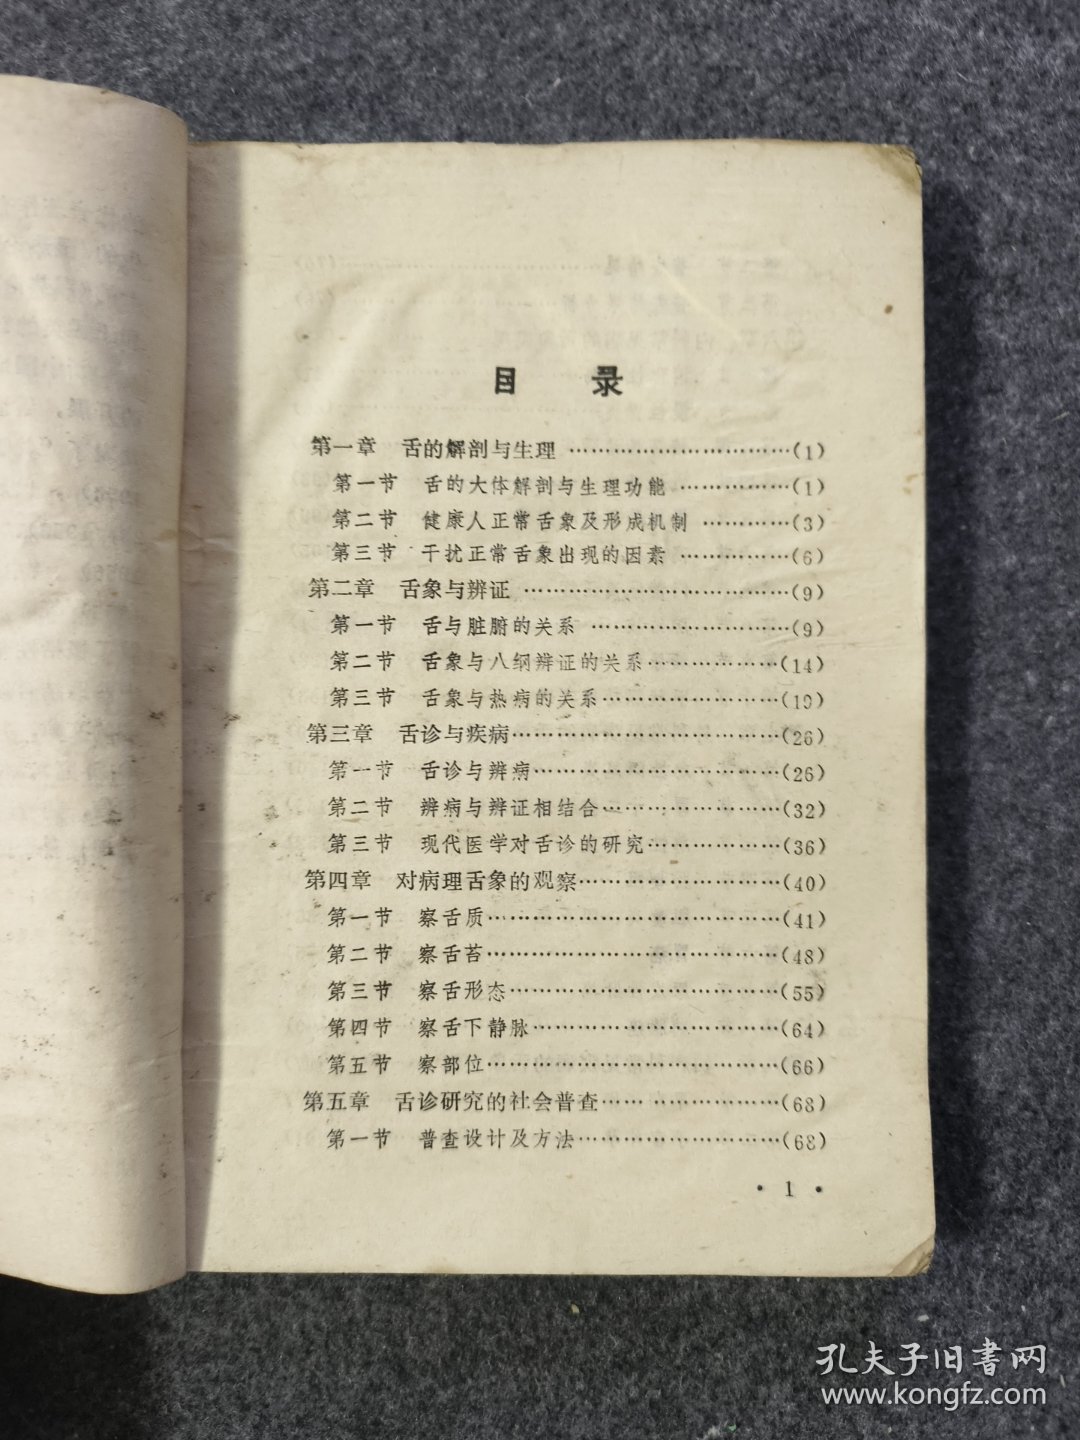 目 录
第一章 舌的解剖与生理 …………………………(1)
第一节 舌的大体解剖与生理功能 ……………(1)
第二节 健康人正常舌象及形成机制 …………(3)
第三节 干扰正常舌象出现的因素 ……………(6)
第二章 舌象与辨证 ………………………………(9)
第一节 舌与脏腑的关系 ………………………(9)
第二节 舌象与八纲辨证的关系………………(14)
第三节 舌象与热病的关系……………………(19)
第三章 舌诊与疾病………………………………(26)
第一节 舌诊与辨病……………………………(26)
第二节 辨病与辨证相结合……………………(32)
第三节 现代医学对舌诊的研究………………(36)
第四章 对病理舌象的观察………………………(40)
第一节 察舌质…………………………………(41)
第二节 察舌苔…………………………………(48)
第三节 察舌形态………………………………(55)
第四节 察舌下静脉……………………………(64)
第五节 察部位…………………………………(66)
第五章 舌诊研究的社会普查…… ………………(68)
第一节 普查设计及方法………………………(68)
• 1 •
孔夫子旧书网
www.kongfz.com